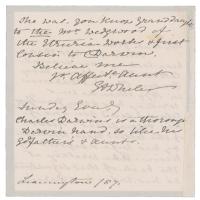 She was, you know, Granddaughter
to the Mr Wedgwood of
the Etruria works & first
Cousin to C Darwin.
Believe me
Yr Affecte Aunt
Sunday Eveng
Charles Darwin's is a thorough
Darwin hand. So like his
Grdfathers & Aunts.
Leamington 187.